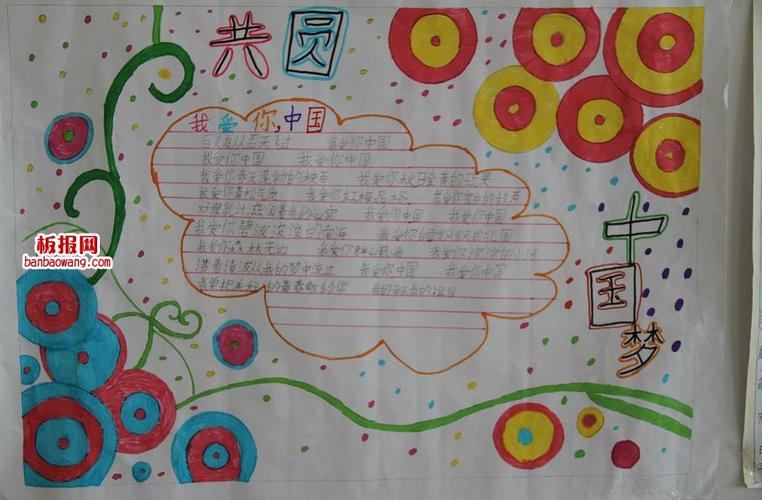 共圆
中国梦
我爱你,中国
百灵鸟从蓝天飞过 我爱你中国
我爱你中国 我爱你中国
我爱你春天蓬勃的秧苗 我爱你秋日金黄的硕果
我爱你青松气质 我爱你红梅品格
好像乳汁滋润着我的心窝 我爱你中国 我爱你中国
我爱你碧波滚滚的南海 我爱你白雪飘飘的北国
我爱你森林无边 我爱你群山巍峨 我爱你淙淙的小河
荡着清波从我的梦中流过 我爱你中国 我爱你中国
我要把美好的青春献给你 我的母亲我的祖国
板报网
banbaowang.com